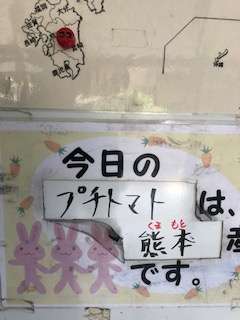 今日の
プチトマト は、
くま もと
熊本 産
です。